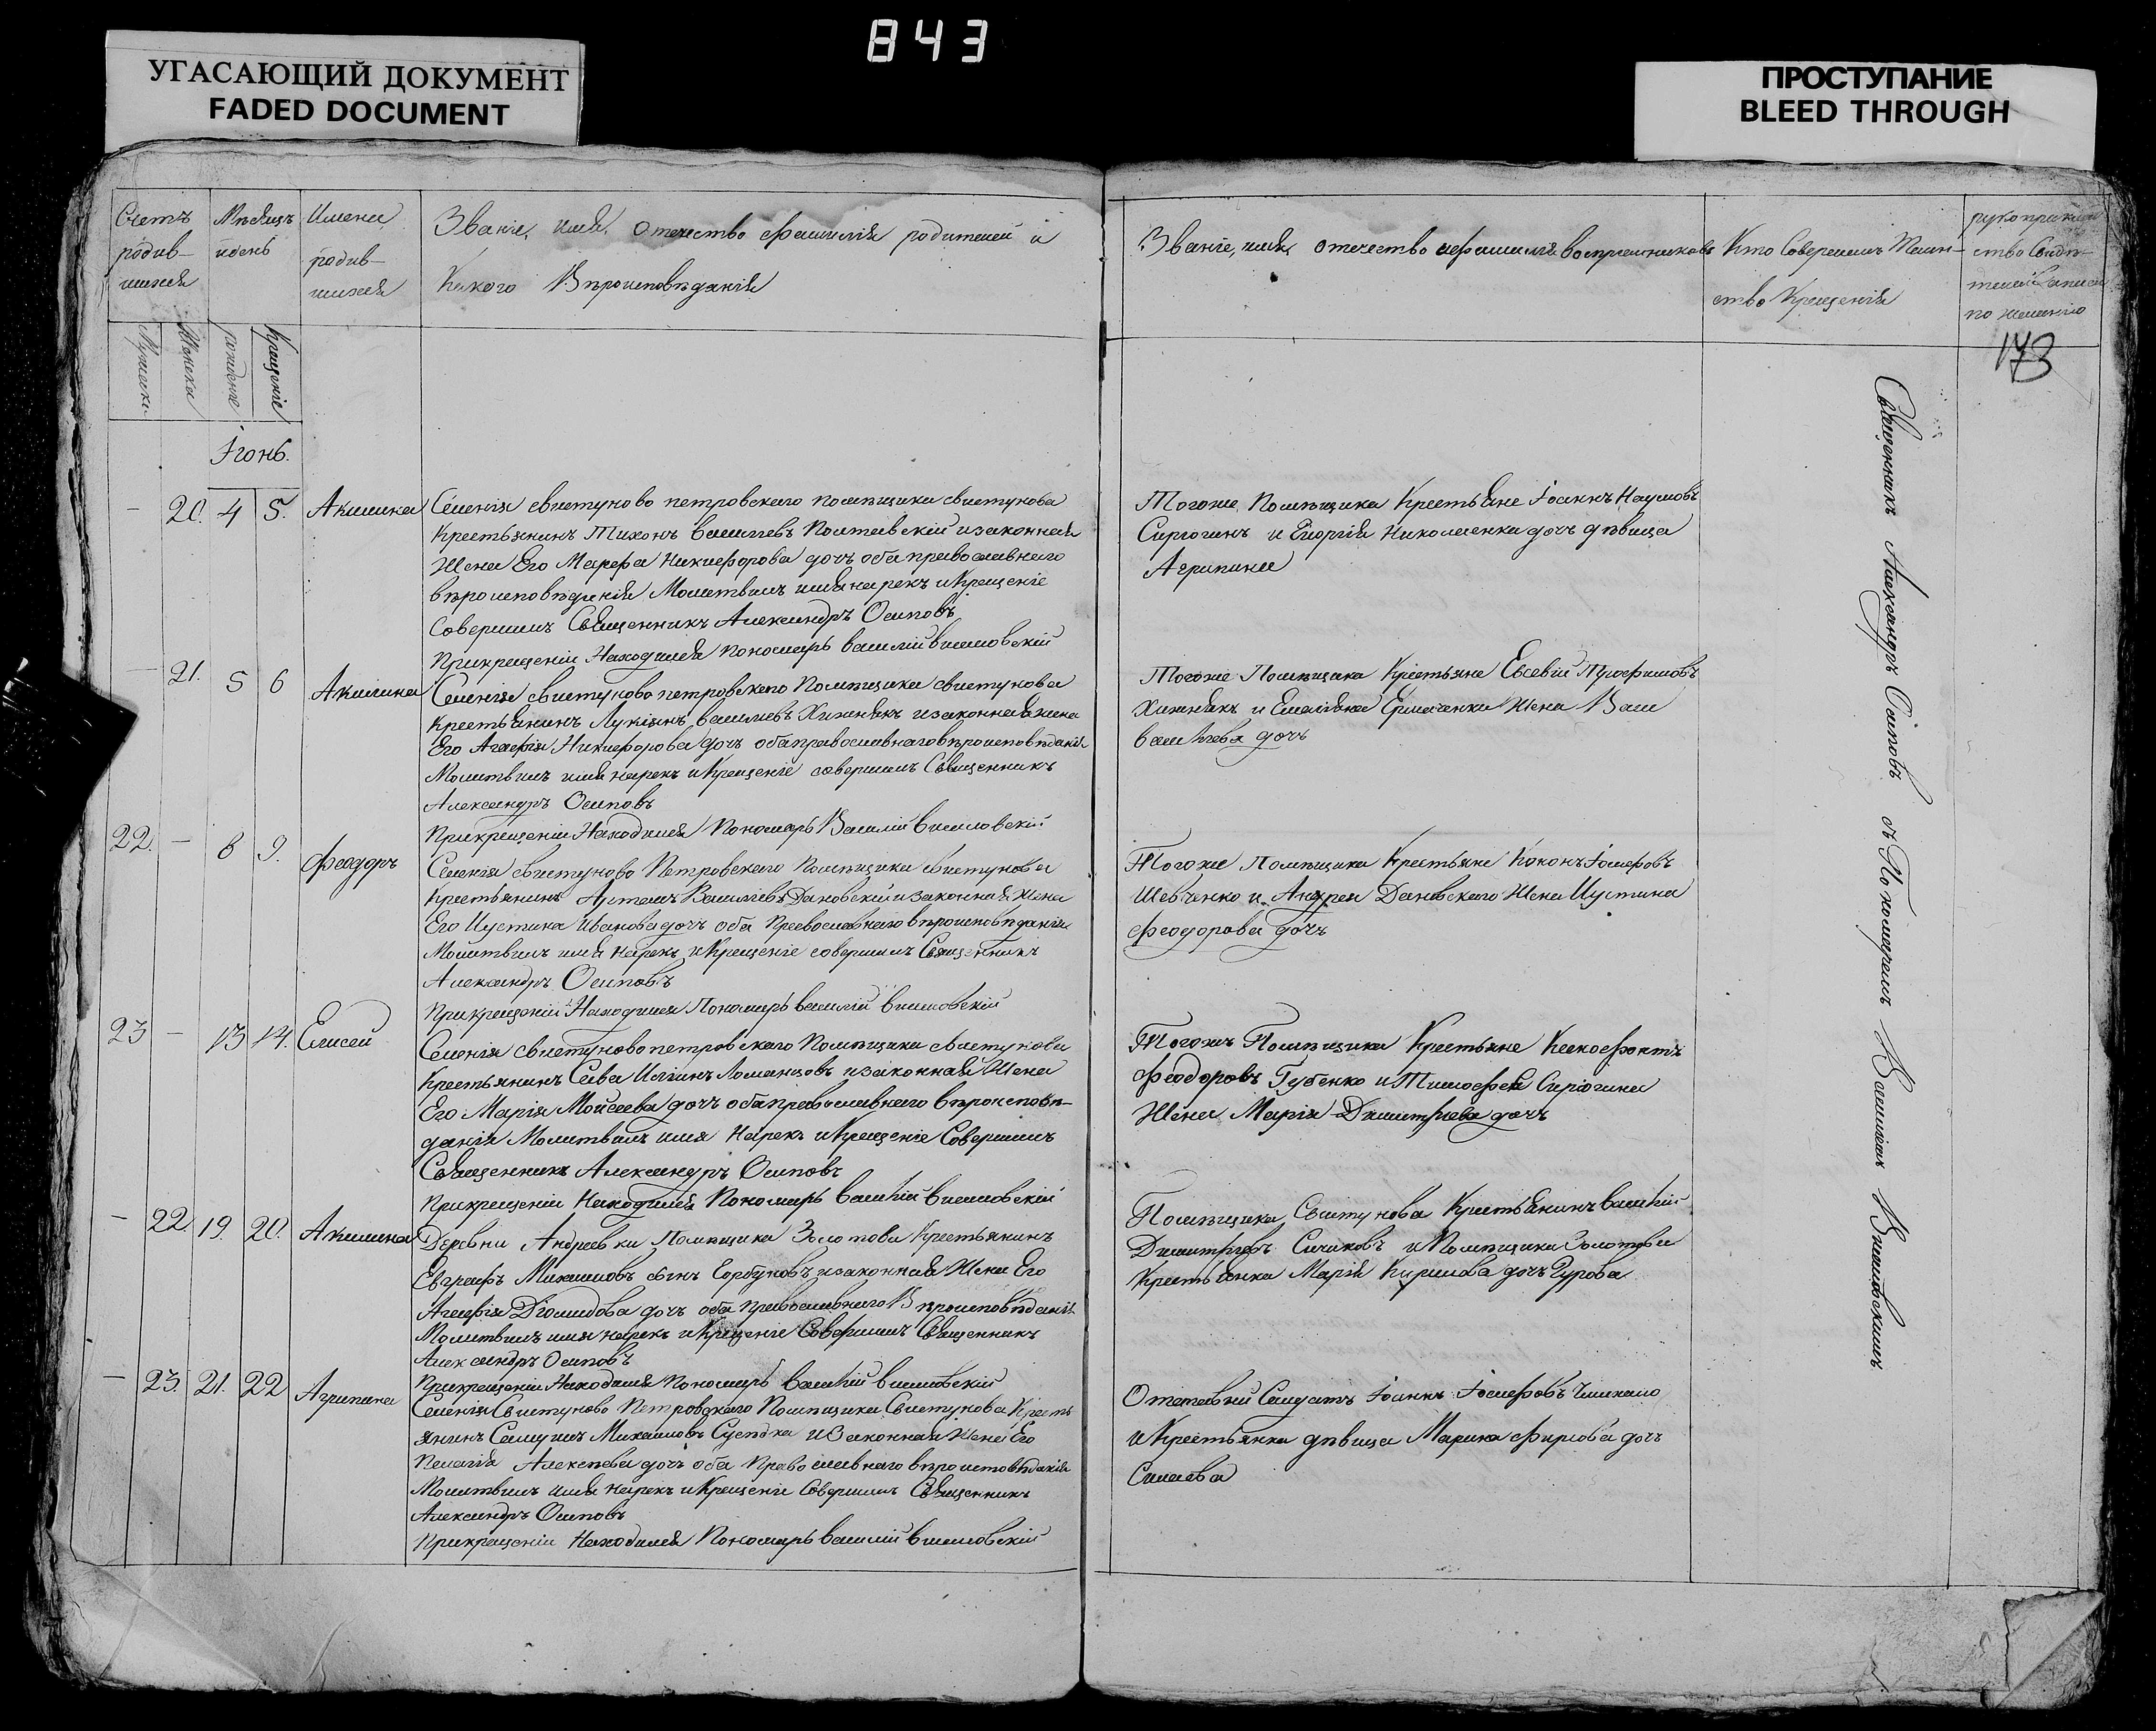 843
УГАСАЮЩИЙ ДОКУМЕНТ
FADED DOCUMENT
ПРОСТУПАНИЕ
BLEED THROUGH
Счетъ родив-шихся
Мѣсяцъ и день
Имена родив-шихся
Званіе, имя, отечество фамилія родителей и
Какого Вѣроисповѣданія
Званіе, имя, отечество и фамилія воспріемниковъ
Кто Совершилъ Таин-
ство Крещенія
рукоприклад
ство Свидѣ-
телей записи
по желанію
Мужеска
Женска
рожденіе
Крещеніе
173
Іюнь.
– 20. 4 5. Акилина
Селенія свистуново петровскаго помѣщика свистунова
Крестьянинъ Тихонъ васильевъ Полтавскій и законная
Жена Его Марфа Никифорова дочъ оба православнаго
вѣроисповѣданія Молитвилъ имя нарекъ и Крещеніе
Совершилъ Священникъ Александръ Осиповъ
При крещеніи Находился Пономарь василій вишловскій
Тогоже Помѣщика Крестьяне Іоаннъ Наумовъ
Сирюгинъ и Георгія Николаенка дочъ дѣвица
Агрипина
– 21. 5 6 Акилина
Селенія свистуново петровскаго Помѣщика свистунова
Крестьянинъ Лукіянъ васильевъ Хижнякъ и законная жена
Его Агафія Никифорова дочъ оба православнаго вѣроисповѣданія
Молитвилъ имя нарекъ и Крещеніе совершилъ Священникъ
Александръ Осиповъ
При крещеніи Находился Пономарь Василій вишловскій
Тогоже Помѣщика Крестьяне Евсевій Трофимовъ
Хижнякъ и Емеліяна Ермаченка Жена Васи
васильева дочъ
22. – 8 9. Феодоръ
Селенія свистуново Петровскаго Помѣщика свистунова
Крестьянинъ Артемъ Васильевъ Дановскій и законная Жена
Его Иустина Иванова дочъ оба Православнаго вѣроисповѣданія
Молитвилъ имя Нарекъ и Крещеніе совершилъ Священникъ
Александръ Осиповъ
При крещеніи Находился Пономарь василій вишловскій
Тогоже Помѣщика Крестьяне Кононъ Іосифовъ
Шевченко и Андрея Дановскаго Жена Иустина
Феодорова дочъ
23 – 13 14. Елисей
Селенія свистуново петровскаго Помѣщика свистунова
Крестьянинъ Сава Иллинъ Ломанцовъ и законная Жена
Его Марія Моисеева дочъ оба православнаго вѣроисповѣ-
данія Молитвилъ имя Нарекъ и Крещеніе Совершилъ
Священникъ Александръ Осиповъ
При крещеніи Находился Пономарь василій вишловскій
Тогожъ Помѣщика Крестьяне Ксенофонтъ
Феодоровъ Губенко и Тимофея Сирюгина
Жена Марія Димитріева дочъ
– 22 19. 20. Акилина
Деревни Андреевки Помѣщика Золотова Крестьянинъ
Евграфъ Михаиловъ сынъ Горбуновъ и законная Жена Его
Агафія Діомидова дочъ оба православнаго Вѣроисповѣданія
Молитвилъ имя нарекъ и Крещеніе Совершилъ Священникъ
Александръ Осиповъ
При крещеніи Находился Пономарь василій вишловскій
Помѣщика Свистунова Крестьянинъ василій
Димитріевъ Сичиковъ и Помѣщика Золотова
Крестьянка Марія Кирилова дочъ Гурова
– 23. 21. 22 Агрипина
Селенія Свистуново Петровскаго Помѣщика Свистунова Кресть
янинъ Самуилъ Михаиловъ Сусѣдка и Законная Жена Его
Пелагія Алексѣева дочъ оба Православнаго вѣроисповѣданія
Молитвилъ имя нарекъ и Крещеніе Совершилъ Священникъ
Александръ Осиповъ
При крещеніи Находился Пономарь василій вишловскій
Отставный Салдатъ Іоаннъ Іосифовъ
и Крестьянка дѣвица Марина Фирсова дочъ
Силаева
Священникъ Александръ Осиповъ съ Пономаремъ Василіемъ Вишловскимъ